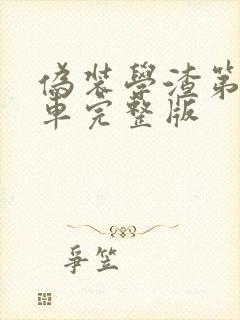 偽裝學渣第
車完整版
爭笠